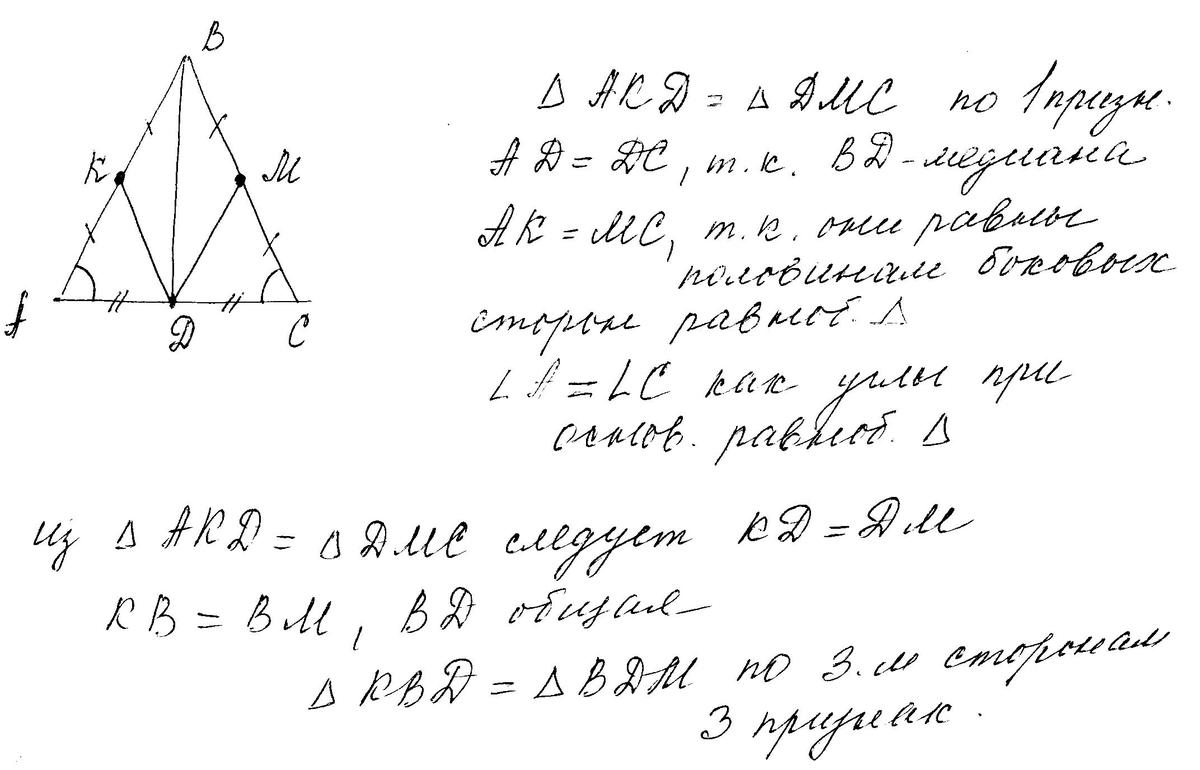 B
K
M
A
D
C
Δ AKD = Δ DMC по 1 призн.
AD = DC, т.к. BD - медиана
AK = MC, т.к. они равны
половинам боковых
сторон равноб. Δ
∠A = ∠C как углы при
основ. равноб. Δ
из Δ AKD = Δ DMC следует KD = DM
KB = BM, BD общая
Δ KBD = Δ BDM по 3.м сторонам
3 признак.